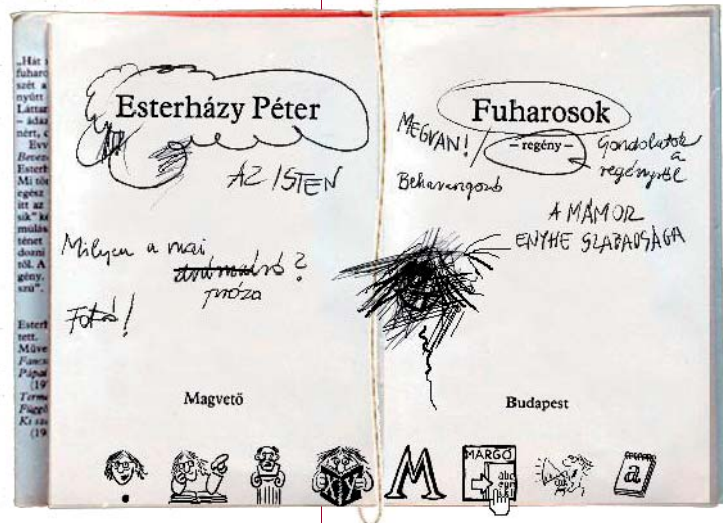 „Hát
fuharo
szét a
nyútt
Láttar
– ádáz
nért, c
Evv
Beveze
Esterh
Mi tör
egész
itt az
sik" ke
mulás
ténet
dozni
től. A
gény,
szú".
Esterh
tett.
Műve
Fancsi
Pápai
(19
Terme
Függő
Ki sza
(19
Esterházy Péter
AZ ISTEN
Milyen a mai
próza
?
Fotó!
Magvető
Fuharosok
MEGVAN!
– regény –
Gondolatok
a
regényről
A MÁMOR
ENYHE SZABADSÁGA
Budapest
XY
M
MARGÓ
abc
a